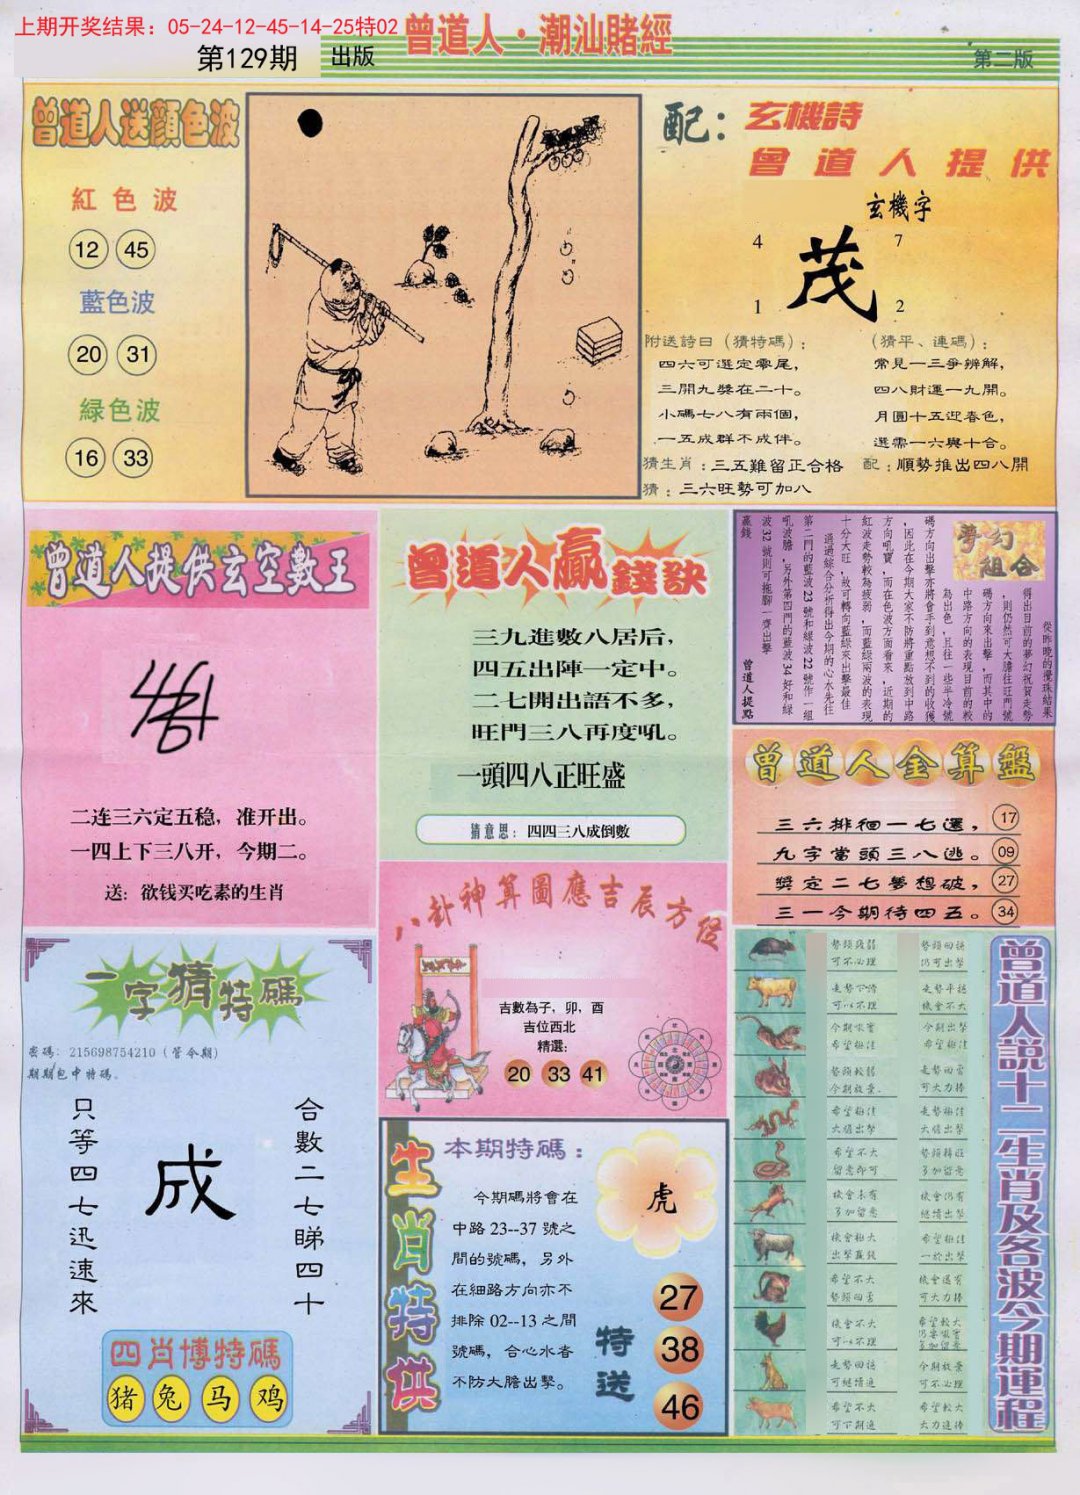 上期开奖结果：05-24-12-45-14-25特02
曾道人·潮汕賭經
第129期
出版
第二版
曾道人送顔色波
紅色波
12 45
藍色波
20 31
緑色波
16 33
配：
玄機詩
曾道人提供
玄機字
4 7
茂
1 2
附送詩曰（猜特碼）：
四六可選定零尾，
三開九獎在二十。
小碼七八有兩個，
一五成群不成伴。
猜生肖：三五難留正合格
猜：三六旺勢可加八
（猜平、連碼）：
常見一三爭辨解，
四八財運一九開。
月圓十五迎春色，
選需一六與十合。
配：順勢推出四八開
曾道人提供玄空數王
二连三六定五稳，准开出。
一四上下三八开，今期二。
送：欲钱买吃素的生肖
曾道人贏錢訣
三九進數八居后，
四五出陣一定中。
二七開出語不多，
旺門三八再度吼。
一頭四八正旺盛
猜意思：四四三八成倒數
夢幻組合
從昨晚的攪珠結果
得出目前的夢幻祝賀走勢
，則仍然可大膽往旺門號
碼方向來出擊，而其中的
中路方向的表現目前的較
為出色，且往一些半冷號
碼方向出擊亦將會手到意想不到的收獲
，因此在今期大家不防將重點放到中路
方向吼寶，而在色波方面看來，近期的
紅波走勢較為疲弱，而藍綠兩波的表現
十分大旺，故可轉向藍綠來出擊最佳
通過綜合分析得出今期的心水先往
第二門的藍波23號和綠波22號作一組
吼波膽，另外第四門的藍波34好和綠
波32號則可拖腳一齊出擊
贏錢
曾道人提點
曾道人全算盤
三六排徊一七還， 17
九字當頭三八逃。 09
獎定二七夢想破， 27
三一今期待四五。 34
八卦神算圖應吉辰方位
吉數為子，卯，酉
吉位西北
精選：
20 33 41
一字猜特碼
密碼：215698754210（管今期）
期期包中特碼。
只等四七迅速來
成
合數二七睇四十
四肖博特碼
猪 兔 马 鸡
生肖特供
本期特碼：
今期碼將會在
中路23--37號之
間的號碼，另外
在細路方向亦不
排除02--13之間
號碼，合心水者
不防大膽出擊。
虎
特送
27
38
46
曾道人説十二生肖及各波今期運程